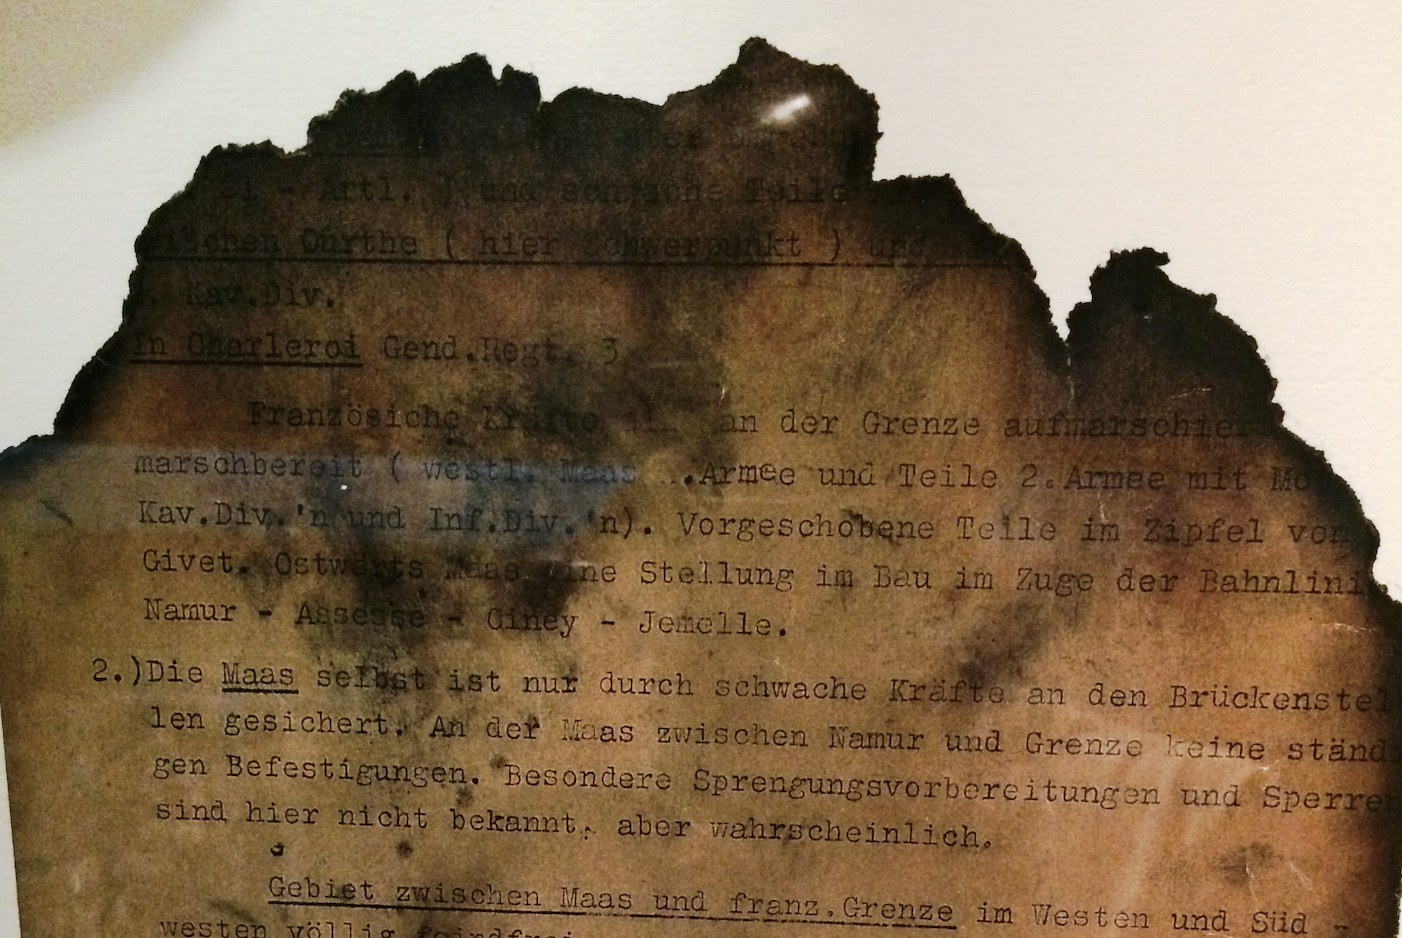 - Artl. ) und schwache Teile
Ourthe ( hier Schwerpunkt ) und
. Kav.Div.
In Charleroi Gend.Regt. 3
Französiche Kräfte an der Grenze aufmarschier
marschbereit ( westl. Maas .Armee und Teile 2.Armee mit Mo
Kav.Div.'n und Inf.Div.'n). Vorgeschobene Teile im Zipfel von
Givet. Ostwärts Maas eine Stellung im Bau im Zuge der Bahnlini
Namur - Assesse - Ciney - Jemelle.
2.)Die Maas selbst ist nur durch schwache Kräfte an den Brückenstel
len gesichert. An der Maas zwischen Namur und Grenze keine ständ
gen Befestigungen. Besondere Sprengungsvorbereitungen und Sperren
sind hier nicht bekannt, aber wahrscheinlich.
Gebiet zwischen Maas und franz.Grenze im Westen und Süd -
westen völlig feindfrei